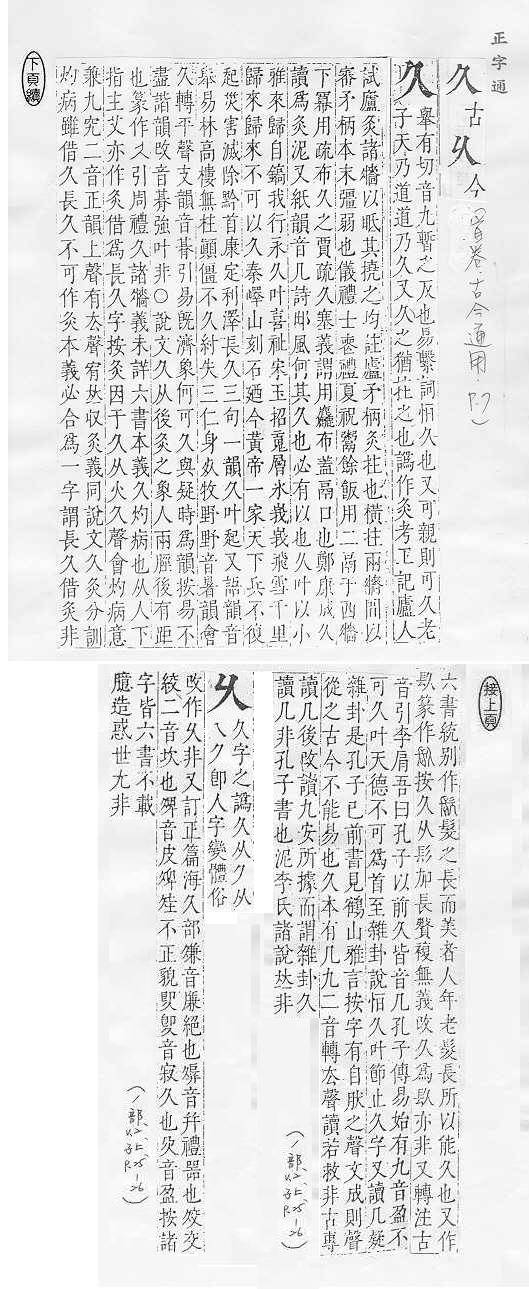 正字通
久古乆今
首卷古今通用
P.7)
久
舉有切音九暫之反也易繫詞恒久也又可親則可久老
子天乃道道乃久又久之猶拄之也譌作灸考工記廬人
試廬灸諸牆以眡其撓之均註廬矛柄灸拄也橫拄兩牆間以
審矛柄本末彊弱也儀禮士喪禮夏祝鬻餘飯用二鬲于西牆
下冪用疏布久之賈疏久塞義謂用麤布蓋鬲口也鄭康成久
讀爲灸泥又紙韻音几詩邶風何其久也必有以也久叶以小
雅來歸自鎬我行永久叶喜祉宋玉招䰟層冰峩峩飛雪千里
歸來歸來不可以久秦嶧山刻石廼今黃帝一家天下兵不復
起災害滅除黔首康定利澤長久三句一韻久叶起又語韻音
舉易林高樓無柱顚僵不久紂失三仁身奴牧野野音暑韻會
久轉平聲支韻音朞引易旣濟象何可久與疑時爲韻按易不
盡諧韻改音朞強叶非○說文久从後灸之象人兩脛後有距
也篆作久引周禮久諸牆義未詳六書本義久灼病也从人下
指主艾亦作灸借爲長久字按灸因于久从火久聲會灼病意
兼九究二音正韻上聲有去聲宥𠀤收灸義同說文久灸分訓
灼病雖借久長久不可作灸本義必合爲一字謂長久借灸非
下頁續
接上頁
六書統别作镹髮之長而美者人年老髮長所以能久也又作
镹篆作镹按久从髟加長贅複無義改久爲镹亦非又轉注古
音引李肩吾曰孔子以前久皆音几孔子傳易始有九音盈不
可久叶天德不可爲首至雜卦說恒久叶節止久字又讀几疑
雜卦是孔子已前書見鶴山雅言按字有自肰之聲文成則聲
從之古今不能易也久本有几九二音轉去聲讀若救非古專
讀几後改讀九安所據而謂雜卦久
讀几非孔子書也泥李氏諸說𠀤非
(丿部
子上
P.25-26)
乆
久字之譌久从久从
乀久卽人字變體俗
改作久非又訂正篇海久部鎌音廉絕也音幷禮器也音交
絞二音坎也音皮不正貌音寂久也音盈按諸
字皆六書不載
臆造惑世尤非
(丿部
子上
P.25-26)